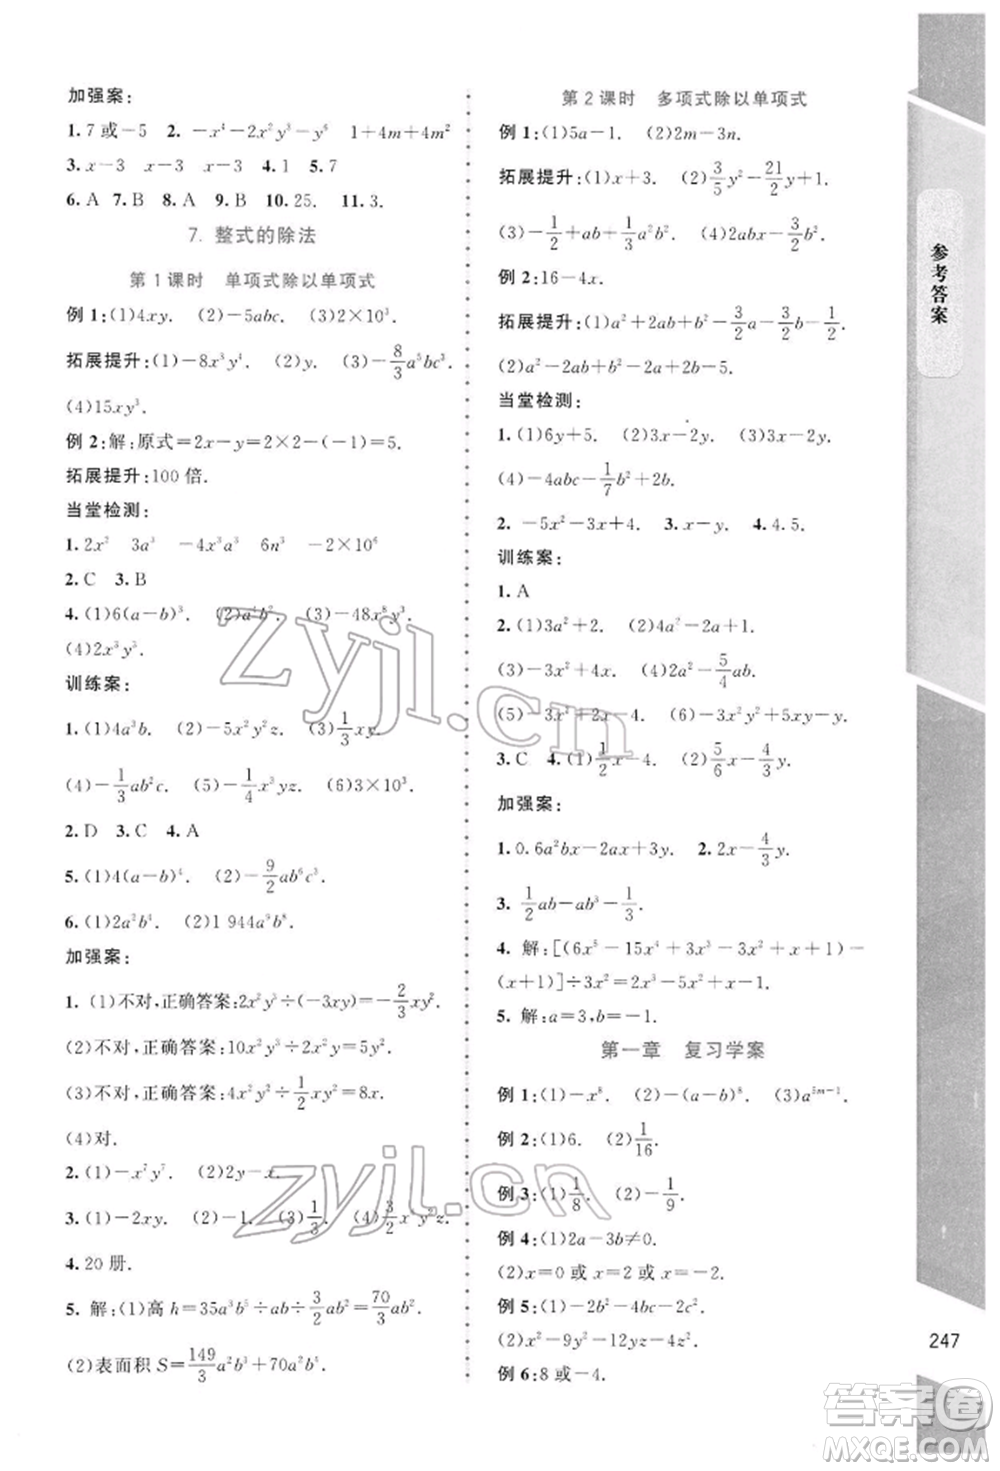 加强案：
1. 7 或 −5　2. −x⁴−2x²y³−y⁶　1+4m+4m²
3. x−3　x−3　x−3　4. 1　5. 7
6. A　7. B　8. A　9. B　10. 25.　11. 3.
7. 整式的除法
第 1 课时　单项式除以单项式
例 1：(1)4xy.　(2)−5abc.　(3)2×10³.
拓展提升：(1)−8x³y⁴.　(2)y.　(3)−8/3a⁵bc³.
(4)15xy³.
例 2：解：原式=2x−y=2×2−(−1)=5.
拓展提升：100 倍.
当堂检测：
1. 2x²　3a³　−4x³a³　6n³　−2×10⁶
2. C　3. B
4. (1)6(a−b)³.　(2)a⁴b².　(3)−48x⁸y³.
(4)2x³y³.
训练案：
1. (1)4a³b.　(2)−5x²y²z.　(3)1/3xy.
(4)−1/3ab²c.　(5)−1/4x³yz.　(6)3×10³.
2. D　3. C　4. A
5. (1)4(a−b)⁴.　(2)−9/2ab⁶c³.
6. (1)2a²b⁴.　(2)1 944a⁹b⁸.
加强案：
1. (1)不对,正确答案：2x²y³÷(−3xy)=−2/3xy².
(2)不对,正确答案：10x²y³÷2x²y=5y².
(3)不对,正确答案：4x²y²÷1/2xy²=8x.
(4)对.
2. (1)−x²y².　(2)2y−x.
3. (1)−2xy.　(2)−1.　(3)1/3.　(4)3/2x²y²z.
4. 20 册.
5. 解：(1)高 h=35a³b⁵÷ab÷3/2ab²=70/3ab².
(2)表面积 S=149/3a²b³+70a²b⁵.
第 2 课时　多项式除以单项式
例 1：(1)5a−1.　(2)2m−3n.
拓展提升：(1)x+3.　(2)3/5y²−21/2y+5.
(3)−1/2+ab+1/3a²b².　(4)2abc−3/2b².
例 2：16−4x.
拓展提升：(1)a²+1/4b²−a−3/2a−3/2b−1/2.
(2)a²−b²−2b+2a+2b−5.
当堂检测：
1. (1)6y+5.　(2)3x−2y.　(3)3x−2y.
(4)−4abc−1/7b²+2b.
2. −5x²−3x+4.　3. x−y.　4. 4.5.
训练案：
1. A
2. (1)3a²+2.　(2)4a²−2a+1.
(3)−3x²+5x.　(4)2a−5/4ab.
(5)−3x²+2x−4.　(6)−4xy−2y+5.
3. C　4. (1)1/2x−4.　(2)5/6x−3/2y.
加强案：
1. 0.6a²bx−2ax+3y.　2. 2x−4/3y.
3. 1/2ab−ab³−1/3.
4. 解：[(6x⁵−15x⁴+3x³−3x²+x+1)−
(x+1)]÷3x²=2x³−5x²+x−1.
5. 解：a=3,b=−1.
第一章　复习学案
例 1：(1)−x⁸.　(2)−(a−b)⁸.　(3)a⁵ᵐ⁻¹
例 2：(1)6.　(2)1/16.
例 3：(1)1/8.　(2)−1/9.
例 4：(1)2a−3b≠0.
(2)x=0 或 x=3 或 x=−2.
例 5：(1)−2b²−4bc−2c².
(2)x²−9y²−12yz−4z².
例 6：8 或−4.
参考答案
247
zyjl.cn
zyjl.cn
答案圈
MXQE.COM